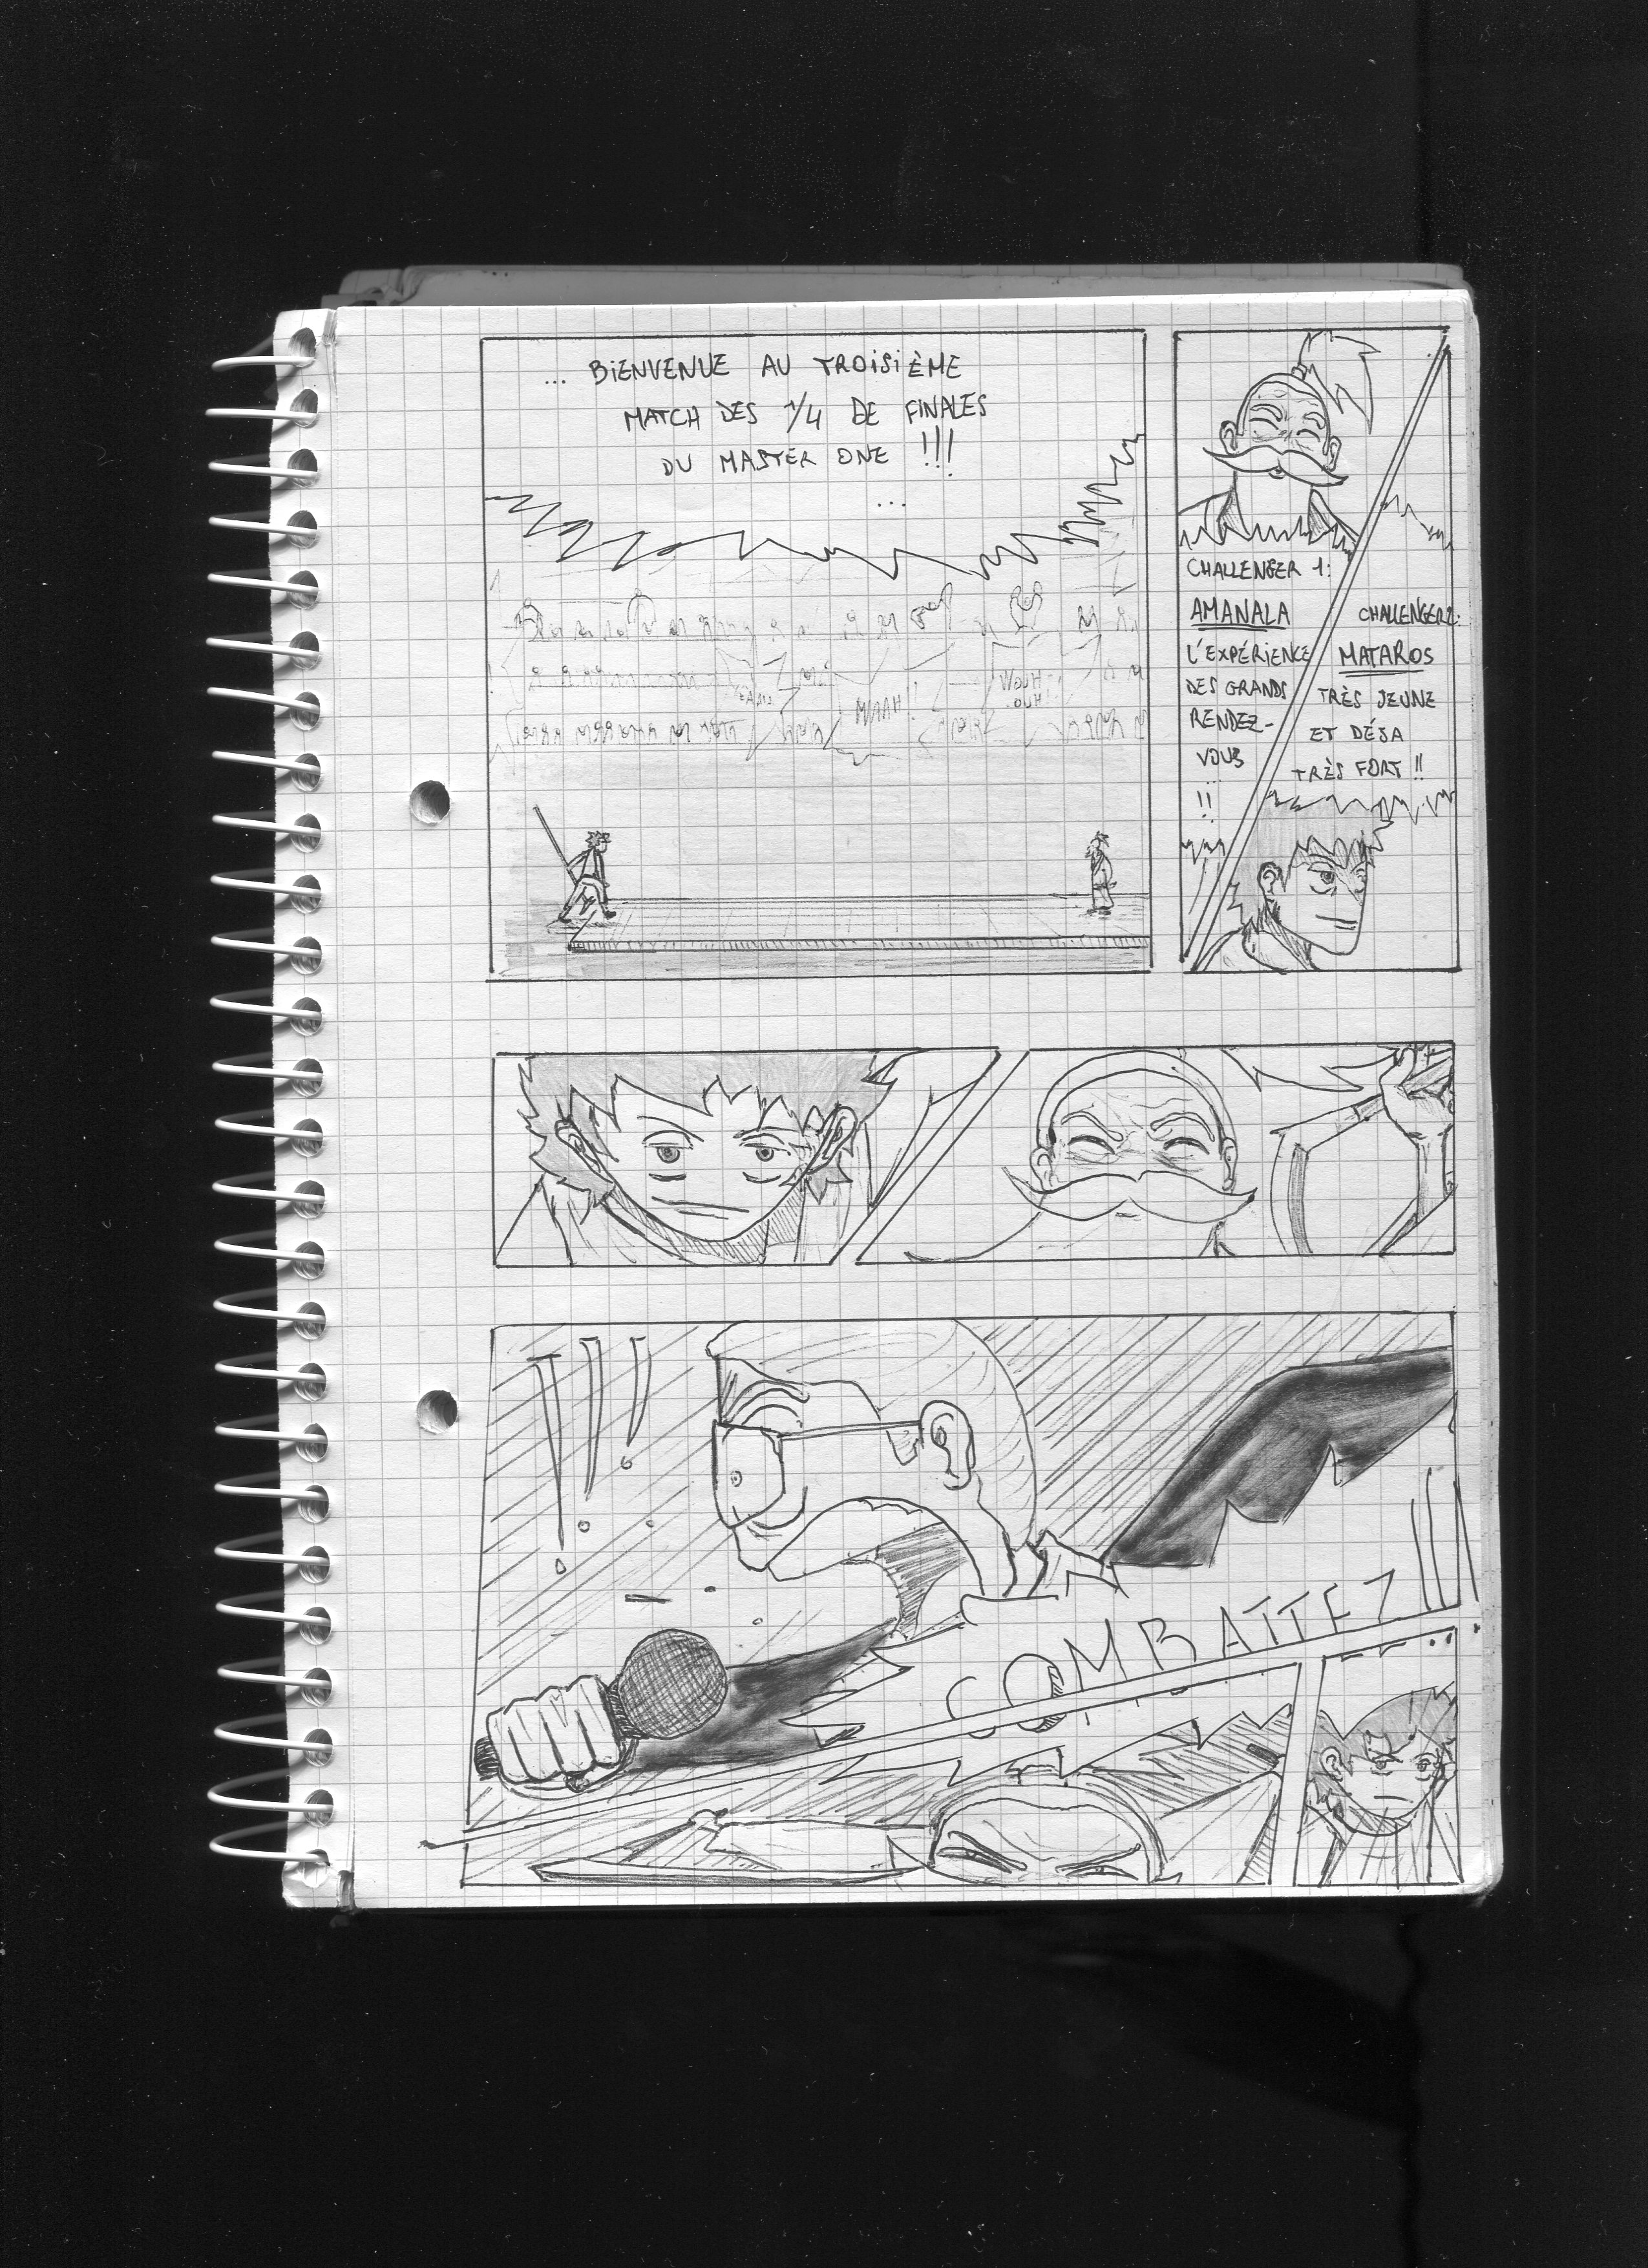 ... BIENVENUE AU TROISIÈME
MATCH DES 1/4 DE FINALES
DU MASTER ONE !!!
...
MAAH!!
HUOW
HUO!!
CHALLENGER 1:
AMANALA
L'EXPÉRIENCE
DES GRANDS
RENDEZ-
VOUS
!!
CHALLENGER 2:
MATAROS
TRÈS JEUNE
ET DÉJA
TRÈS FORT !!
!!!
COMBATTEZ !!!